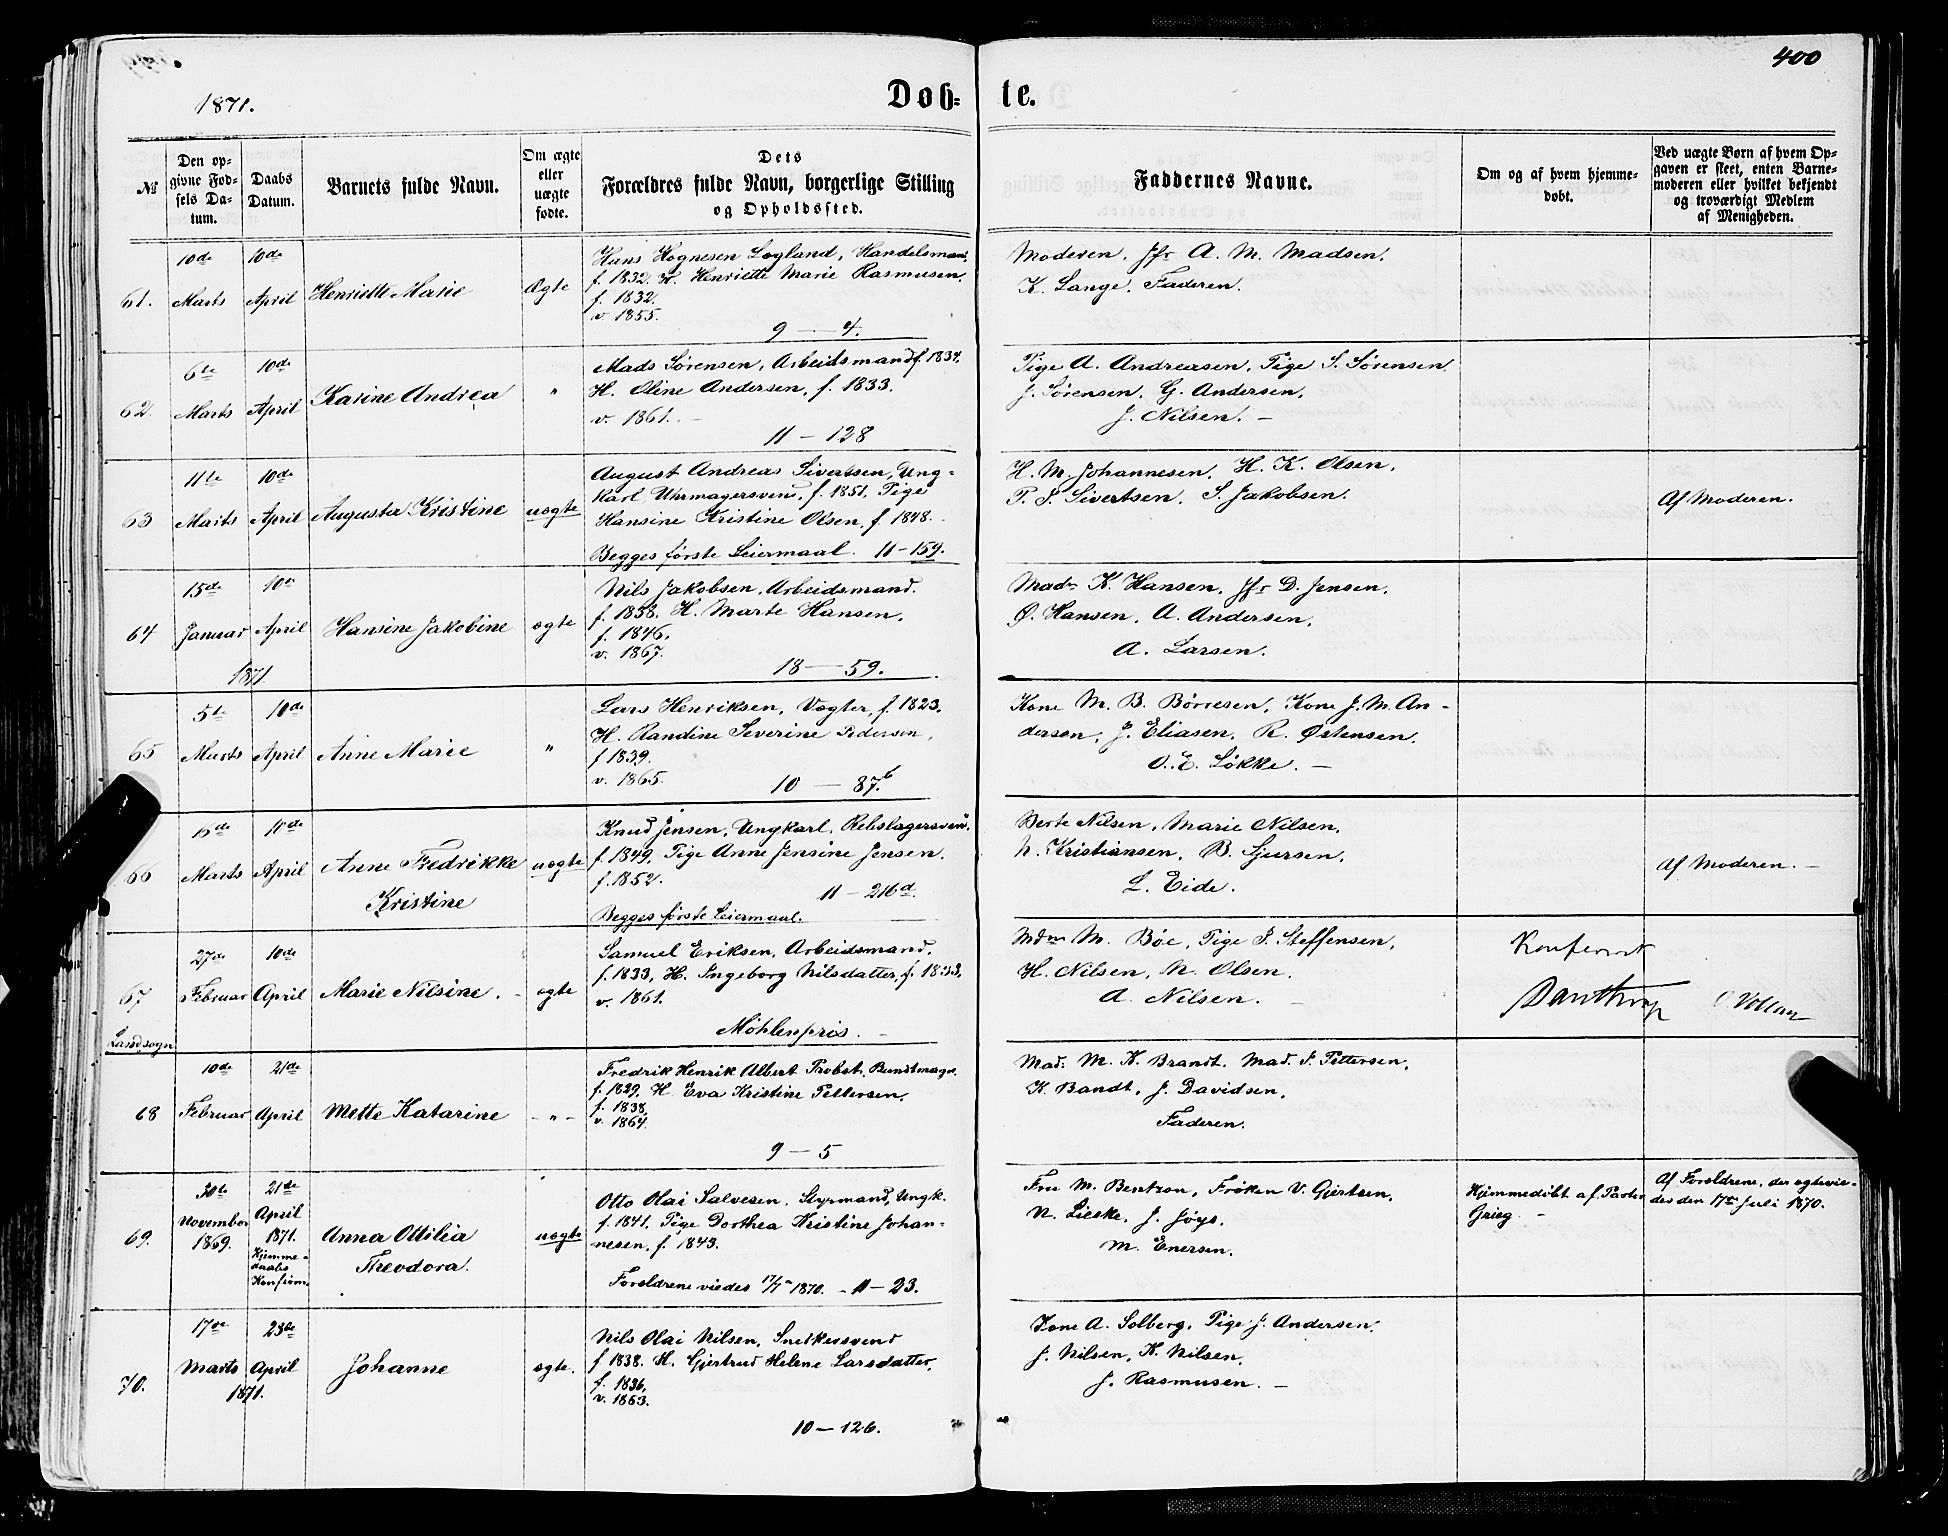 400
1871.
Døb- te.
№
Den op-
givne Fød-
sels Da-
tum.
Daabs
Datum.
Barnets fulde Navn.
Om ægte
eller
uægte
fødte.
Dets
Forældres fulde Navn, borgerlige Stilling
og Opholdssted.
Faddernes Navne.
Om og af hvem hjemme-
døbt.
Ved uægte Børn af hvem Op-
gaven er skeet, enten Barne-
moderen eller hvilket bekjendt
og troværdigt Medlem
af Menigheden.
61.
10de
Marts
10de
April
Henriette Marie
Ægte
Hans Hognesen Løgland, Handelsmand,
f. 1832. H. Henriette Marie Rasmusen,
f. 1832.
v. 1855.
9 — 4.
Moderen, Jfr A. M. Madsen,
K. Lange, Faderen.
62
6te
Marts
10de
April
Karine Andrea
"
Mads Sørensen, Arbeidsmand f. 1834.
H. Oline Andersen, f. 1833.
v. 1861. -
11 - 128
Pige A. Andreasen, Pige S. Sørensen
J. Sørensen, G. Andersen,
J. Nilsen. -
63
11te
Marts
10de
April
Augusta Kristine
uægte
August Andreas Sivertsen, Ung-
karl Uhrmagersvend, f. 1851. Pige
Hansine Kristine Olsen, f. 1848.
Begges første Leiermaal. 11-159.
H. M. Johannesen, H. K. Olsen,
P. S. Sivertsen, S. Jakobsen.
Af Moderen.
64
15de
Januar
10de
April
1871
Hansine Jakobine
ægte
Nils Jakobsen, Arbeidsmand.
f. 1838. H. Marte Hansen,
f. 1846,
v. 1867.
18 — 59.
Madm K. Hansen, Jfr D. Jensen,
Ø. Hansen, A. Andersen,
A. Larsen.
65
5te
Marts
10de
April
Anne Marie
"
Lars Henriksen, Vægter, f. 1823.
H. Randine Severine Pedersen,
f 1839.
v. 1865.
10 — 87.b
Kone M. B. Børresen, Kone J. M. An-
dersen, J. Eliasen, R. Østensen,
O. E. Løkke. -
66
15de
Marts
11de
April
Anne Fredrikke
Kristine
uægte
Knud Jensen, Ungkarl, Rebslagersvend,
f. 1849. Pige Anne Jensine Jensen.
f. 1852.
11 - 216d.
Begges første Leiermaal.
Berte Nilsen, Marie Nilsen,
N. Kristiansen, B. Sjursen,
L. Eide.
Af Moderen. -
67
Landsogn
27de
Februar
10de
April
Marie Nilsine. -
ægte
Samuel Eriksen, Arbeidsmand,
f. 1833, H. Ingeborg Nilsdatter, f. 1833,
v. 1861.
Møhlenpris. -
Mdm M. Bøe, Pige S. Steffensen,
H. Nilsen, N. Olsen,
A. Nilsen. -
Konfereret
68
10de
Februar
21de
April
Mette Katarine
- " -
Fredrik Henrik Albert Probst, Bundtmager,
f. 1829. H. Eva Kristine Pettersen,
f. 1838,
v. 1864.
9 - 5
Mad. M. K. Brandt, Mad. S. Pettersen,
K. Bandt, J. Davidsen,
Faderen.
69.
30te
November
1869.
21de
April
1871.
Hjemme-
daabs
Konfirm.
Anna Ottilia
Theodora.
uægte
Otto Olai Salvesen, Styrmand, Ungk.
f. 1841. Pige Dorthea Kristine Johan-
nesen, f. 1843.
Forældrene viedes 17/7 1870. - 11 - 23.
Fru M. Bentzon, Frøken V. Gjertsen,
N. Lieske, J. Joys,
M. Enersen.
Hjemmedøbt af Pastor
Grieg. -
Af Forældrene, der ægtevie-
des den 17de Juli 1870.
70.
17de
Marts
23de
April
1871.
Johanne
ægte.
Nils Olai Nilsen, Snedkersvend
f 1838. H. Gjertrud Helene Larsdatter,
f. 1836,
v. 1863.
10 - 126.
Kone A. Solberg, Pige J. Andersen,
J. Nilsen, K. Nilsen,
J. Rasmusen. -